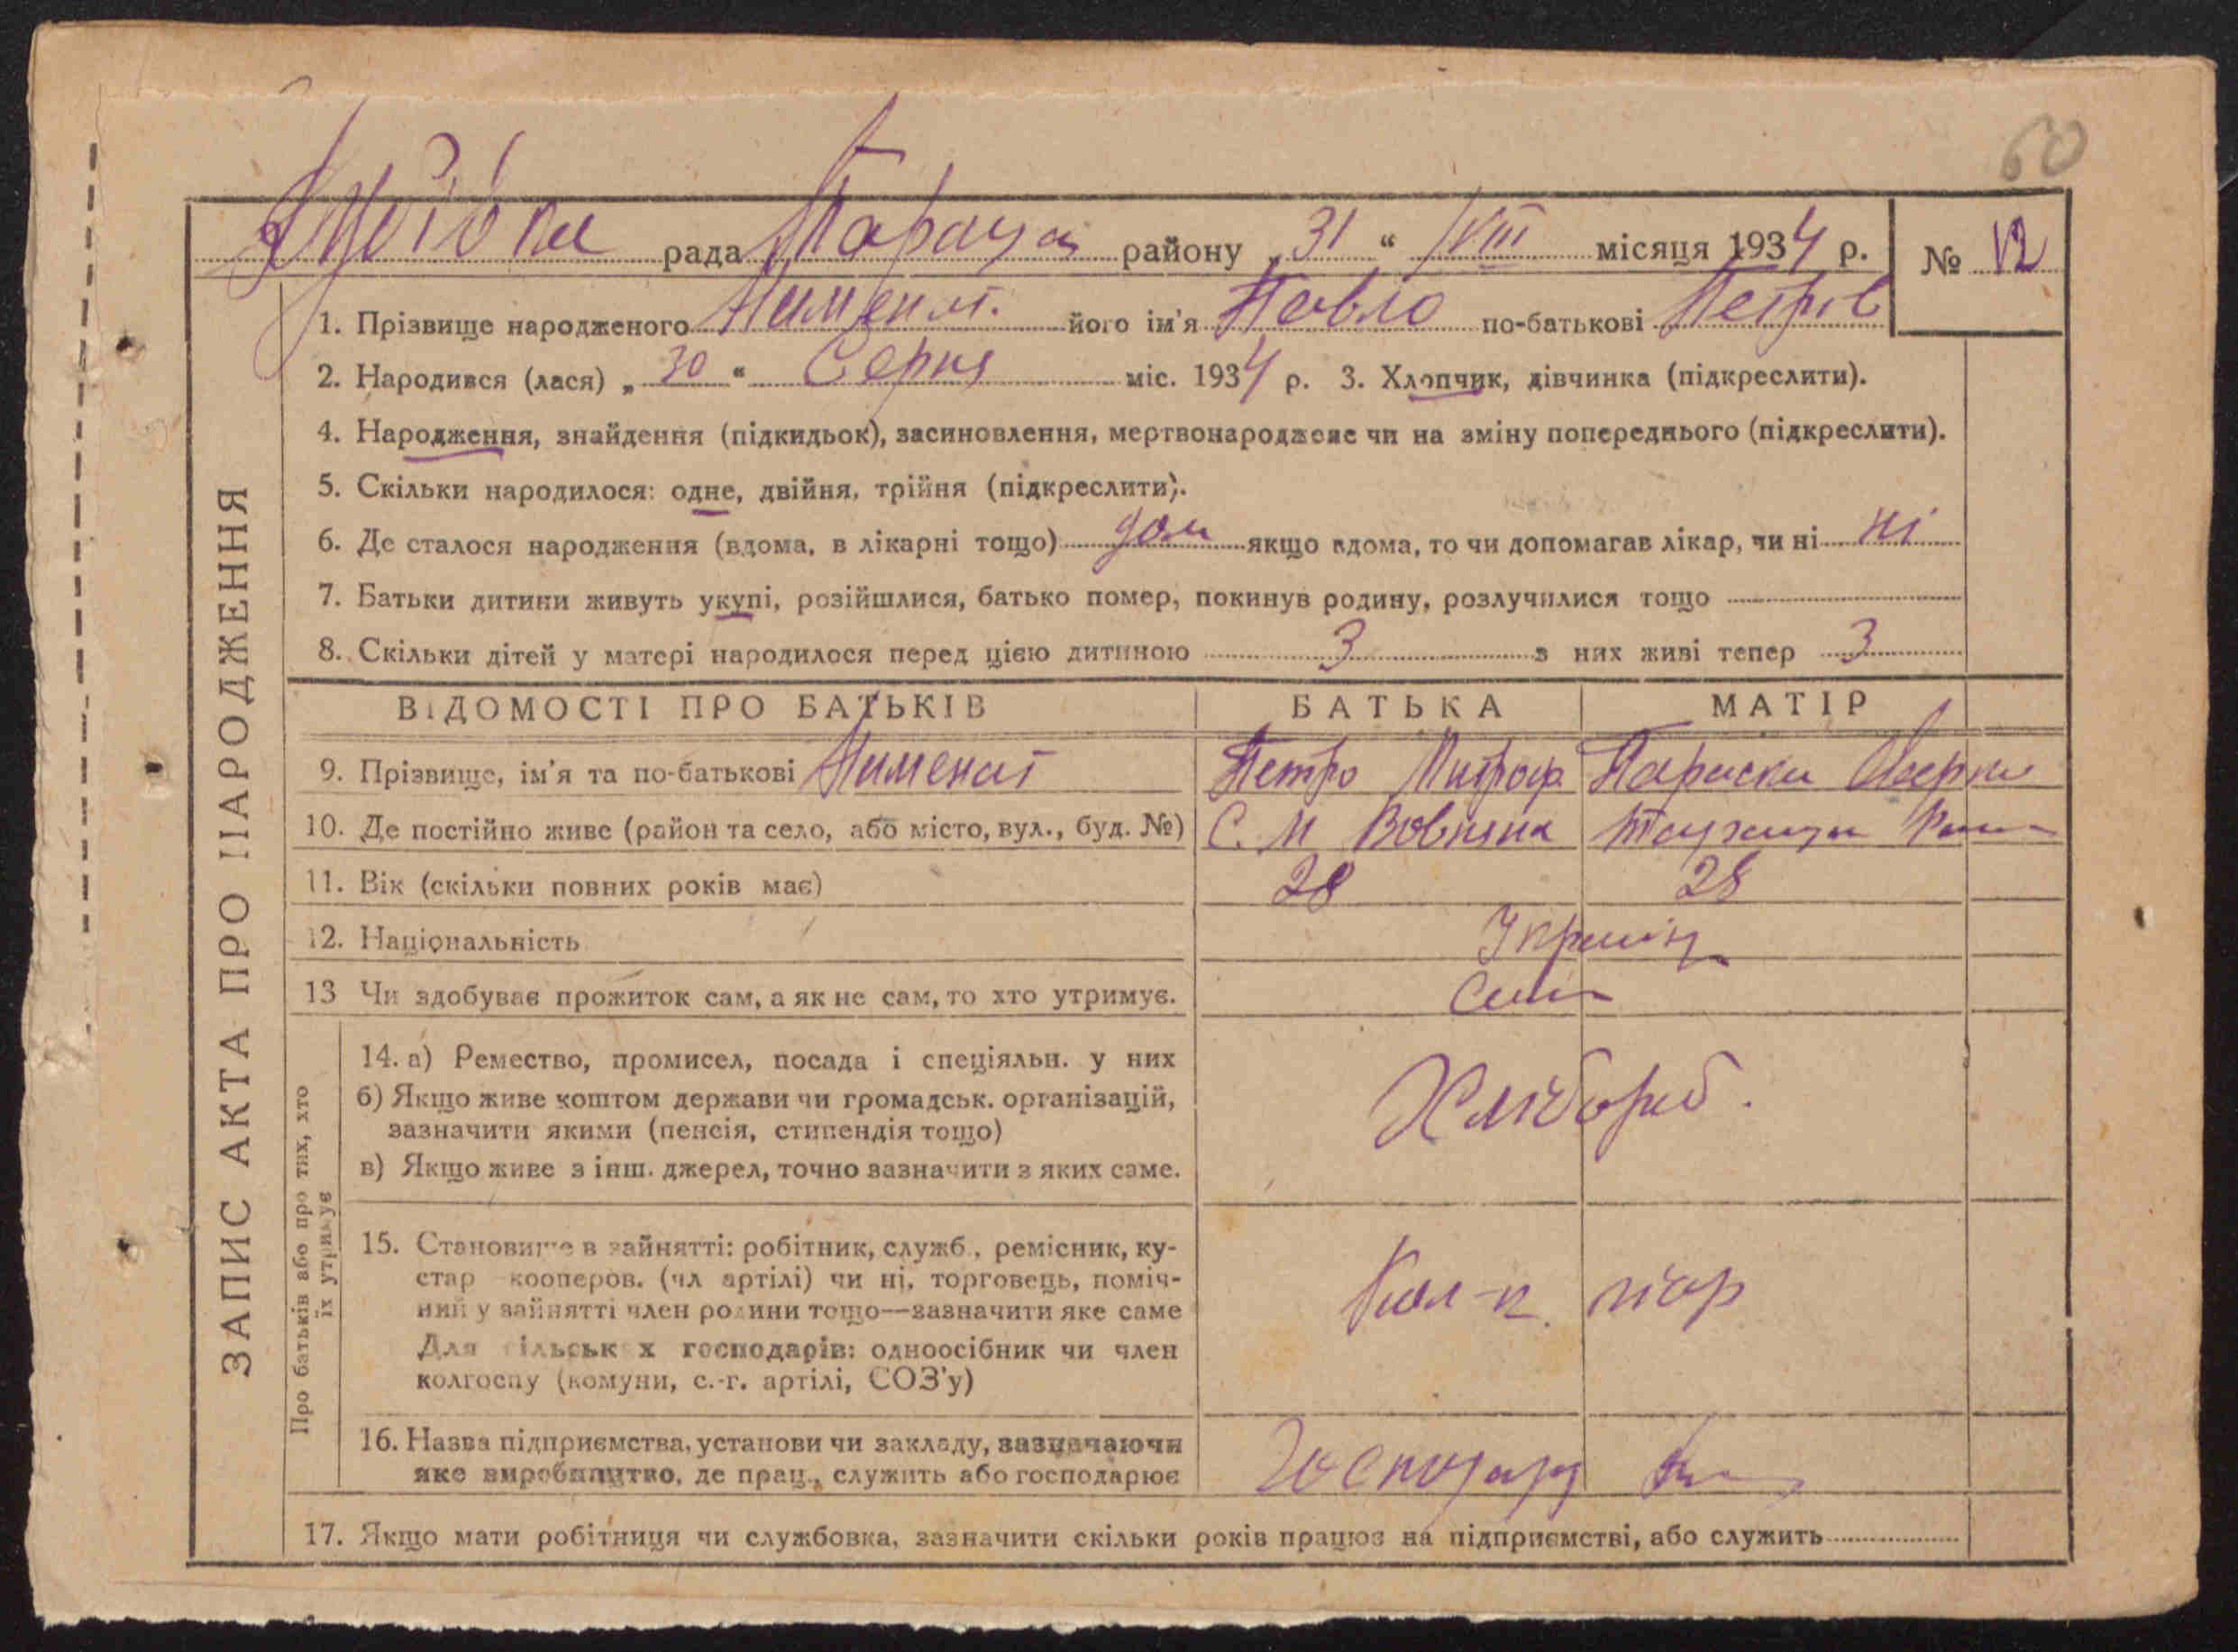 60
рада район‍у „31“ VIII місяця 1934 р. № 12
1. Прізвище народженого його ім'я Павло по-батькові Петров
2. Народився (лася) „30“ Серпня міс. 1934 р. 3. Хлопчик, дівчинка (підкреслити).
4. Народження, знайдення (підкидьок), засиновлення, мертвонароджене чи на зміну попереднього (підкреслити).
5. Скільки народилося: одне, двійня, трійня (підкреслити).
6. Де сталося народження (вдома, в лікарні тощо) дом якщо вдома, то чи допомагав лікар, чи ні ні
7. Батьки дитини живуть укупі, розійшлися, батько помер, покинув родину, розлучилися тощо
8. Скільки дітей у матері народилося перед цією дитиною 3 з них живі тепер 3
ВІДОМОСТІ ПРО БАТЬКІВ БАТЬКА МАТІР
9. Прізвище, ім'я та по-батькові Петро Митроф Параска
10. Де постійно живе (район та село, або місто, вул., буд. №) С. М Вовнянка
11. Вік (скільки повних років має) 28 28
12. Національність Україн
13 Чи здобуває прожиток сам, а як не сам, то хто утримує. Сам
14. а) Ремество, промисел, посада і спеціяльн. у них
б) Якщо живе коштом держави чи громадськ. організацій,
зазначити якими (пенсія, стипендія тощо)
в) Якщо живе з інш. джерел, точно зазначити з яких саме.
Хлібороб.
15. Становище в зайнятті: робітник, служб., ремісник, ку-
стар кооперов. (чл артілі) чи ні, торговець, поміч-
ний у зайнятті член родини тощо—зазначити яке саме
Для сільських господарів: одноосібник чи член
колгоспу (комуни, с.-г. артілі, СОЗ'у)
16. Назва підприємства, установи чи закладу, зазначаючи
яке виробництво, де прац., служить або господарює
17. Якщо мати робітниця чи службовка, зазначити скільки років працює на підприємстві, або служить
ЗАПИС АКТА ПРО НАРОДЖЕННЯ
Про батьків або про тих, хто
їх утримує